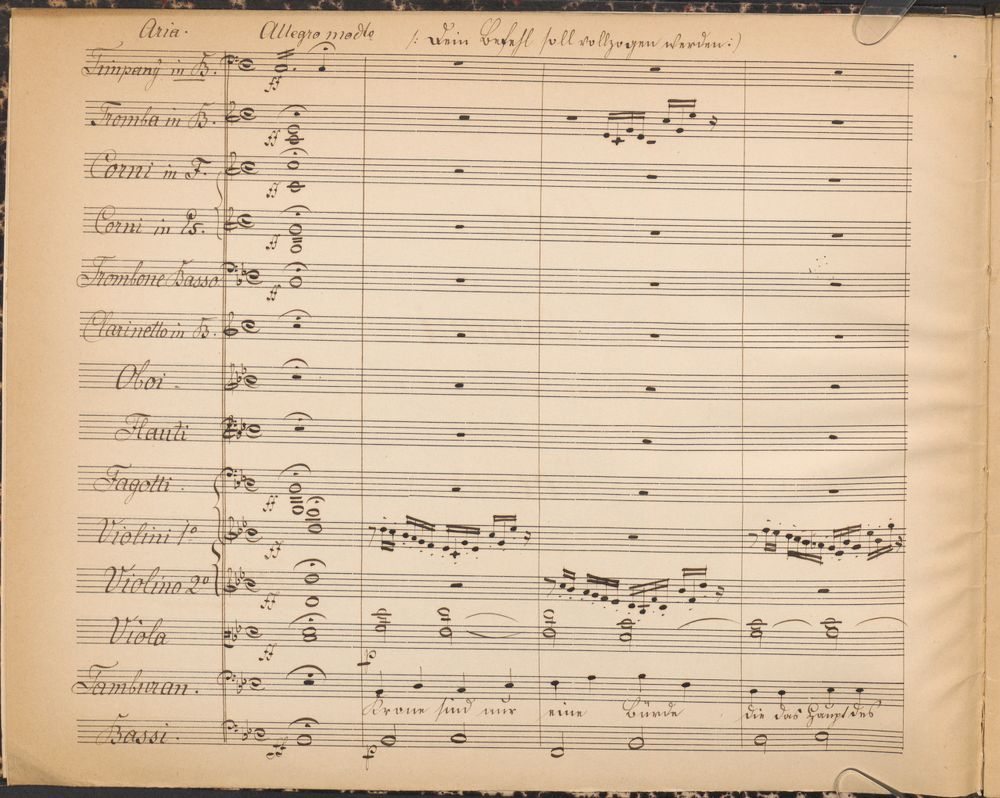 Aria. Allegro modto /: Dein Befehl soll vollzogen werden :)
Timpany in B.
ff
Tromba in B.
ff
Corni in F.
ff
Corni in Es.
ff
Trombone Basso
ff
Clarinetto in B.
Oboi.
Flauti
Fagotti.
ff
Violini 1o
ff
Violino 2o
ff
Viola
ff p
Tamburan.
Krone sind nur eine Bürde die das Haupt des
Bassi.
ff p